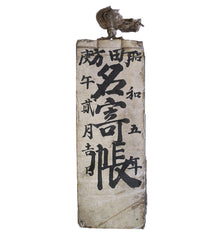 昭和五年
田方
名寄帳
庚午貳月吉日